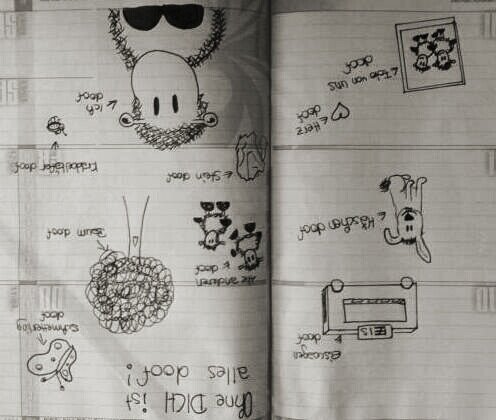 Ohne DICH ist
alles doof!
Schmetterling
doof
Alle anderen
doof
Baum doof
Stein doof
Krabbelkäfer doof
Ich
doof
Eiswagen
doof
EIS
Häschen doof
Herz
doof
Foto von uns
doof